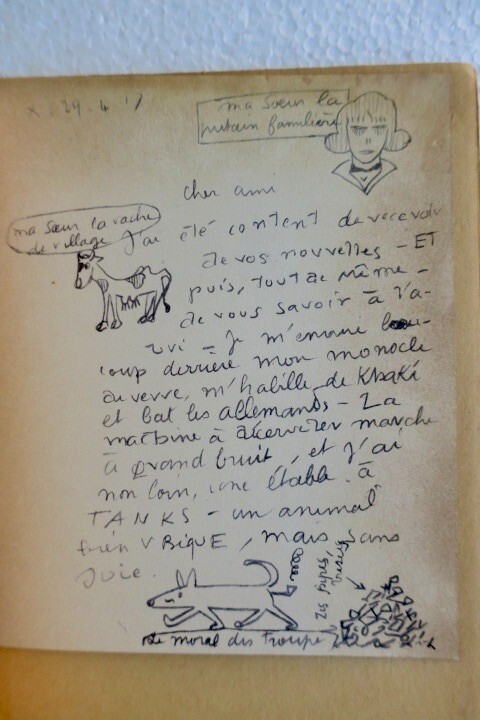 X. 29.4.17
ma sœur la
putain familière
cher ami
ma sœur la vache
de village
J'ai été content de recevoir
de vos nouvelles – ET
puis, tout de même –
de vous savoir à l'a-
bri – Je m'ennuie beau-
coup derrière mon monocle
de verre, m'habille de Khaki
et bat les allemands – La
machine à décerveler marche
à grand bruit, et j'ai
non loin, une étable à
TANKS – un animal
bien UBIQUE, mais sans
joie.
Les pipes,
brisées
Le moral des troupes